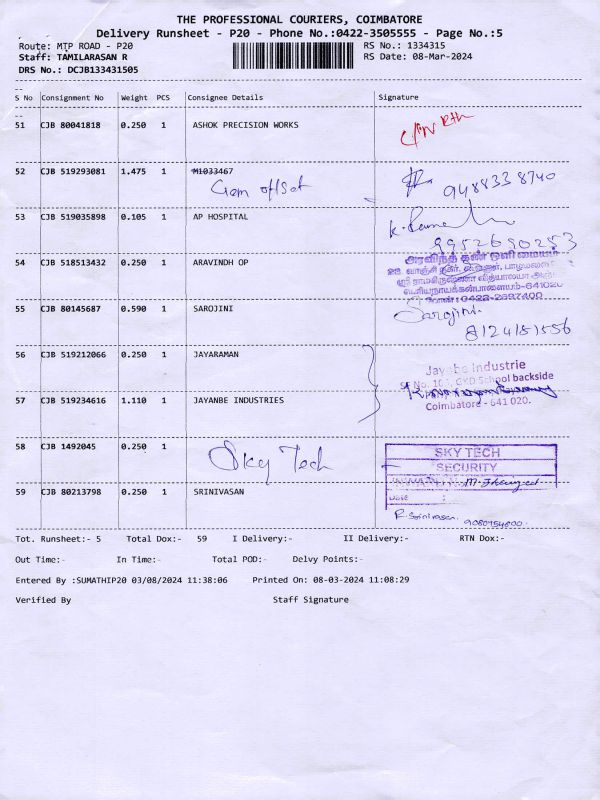 THE PROFESSIONAL COURIERS, COIMBATORE
Delivery Runsheet - P20 - Phone No.:0422-3505555 - Page No.:5
Route: MTP ROAD - P20 RS No.: 1334315
Staff: TAMILARASAN R RS Date: 08-Mar-2024
DRS No.: DCJB133431505
S No Consignment No Weight PCS Consignee Details Signature
51 CJB 80041818 0.250 1 ASHOK PRECISION WORKS
52 CJB 519293081 1.475 1 M1033467
Gem offset 9488338740
53 CJB 519035898 0.105 1 AP HOSPITAL
9952690253
54 CJB 518513432 0.250 1 ARAVINDH OP
அரவிந்த் கண் ஒளி மையம்
போன் : 0422-2697400
55 CJB 80145687 0.590 1 SAROJINI Sarojini
8124151556
56 CJB 519212066 0.250 1 JAYARAMAN
Jayanbe Industrie
GKD School backside
57 CJB 519234616 1.110 1 JAYANBE INDUSTRIES
Coimbatore - 641 020.
58 CJB 1492045 0.250 1 Sky Tech
SKY TECH
SECURITY
Date :
59 CJB 80213798 0.250 1 SRINIVASAN
R. Srinivasan 9080754800
Tot. Runsheet:- 5 Total Dox:- 59 I Delivery:- II Delivery:- RTN Dox:-
Out Time:- In Time:- Total POD:- Delvy Points:-
Entered By :SUMATHIP20 03/08/2024 11:38:06 Printed On: 08-03-2024 11:08:29
Verified By Staff Signature